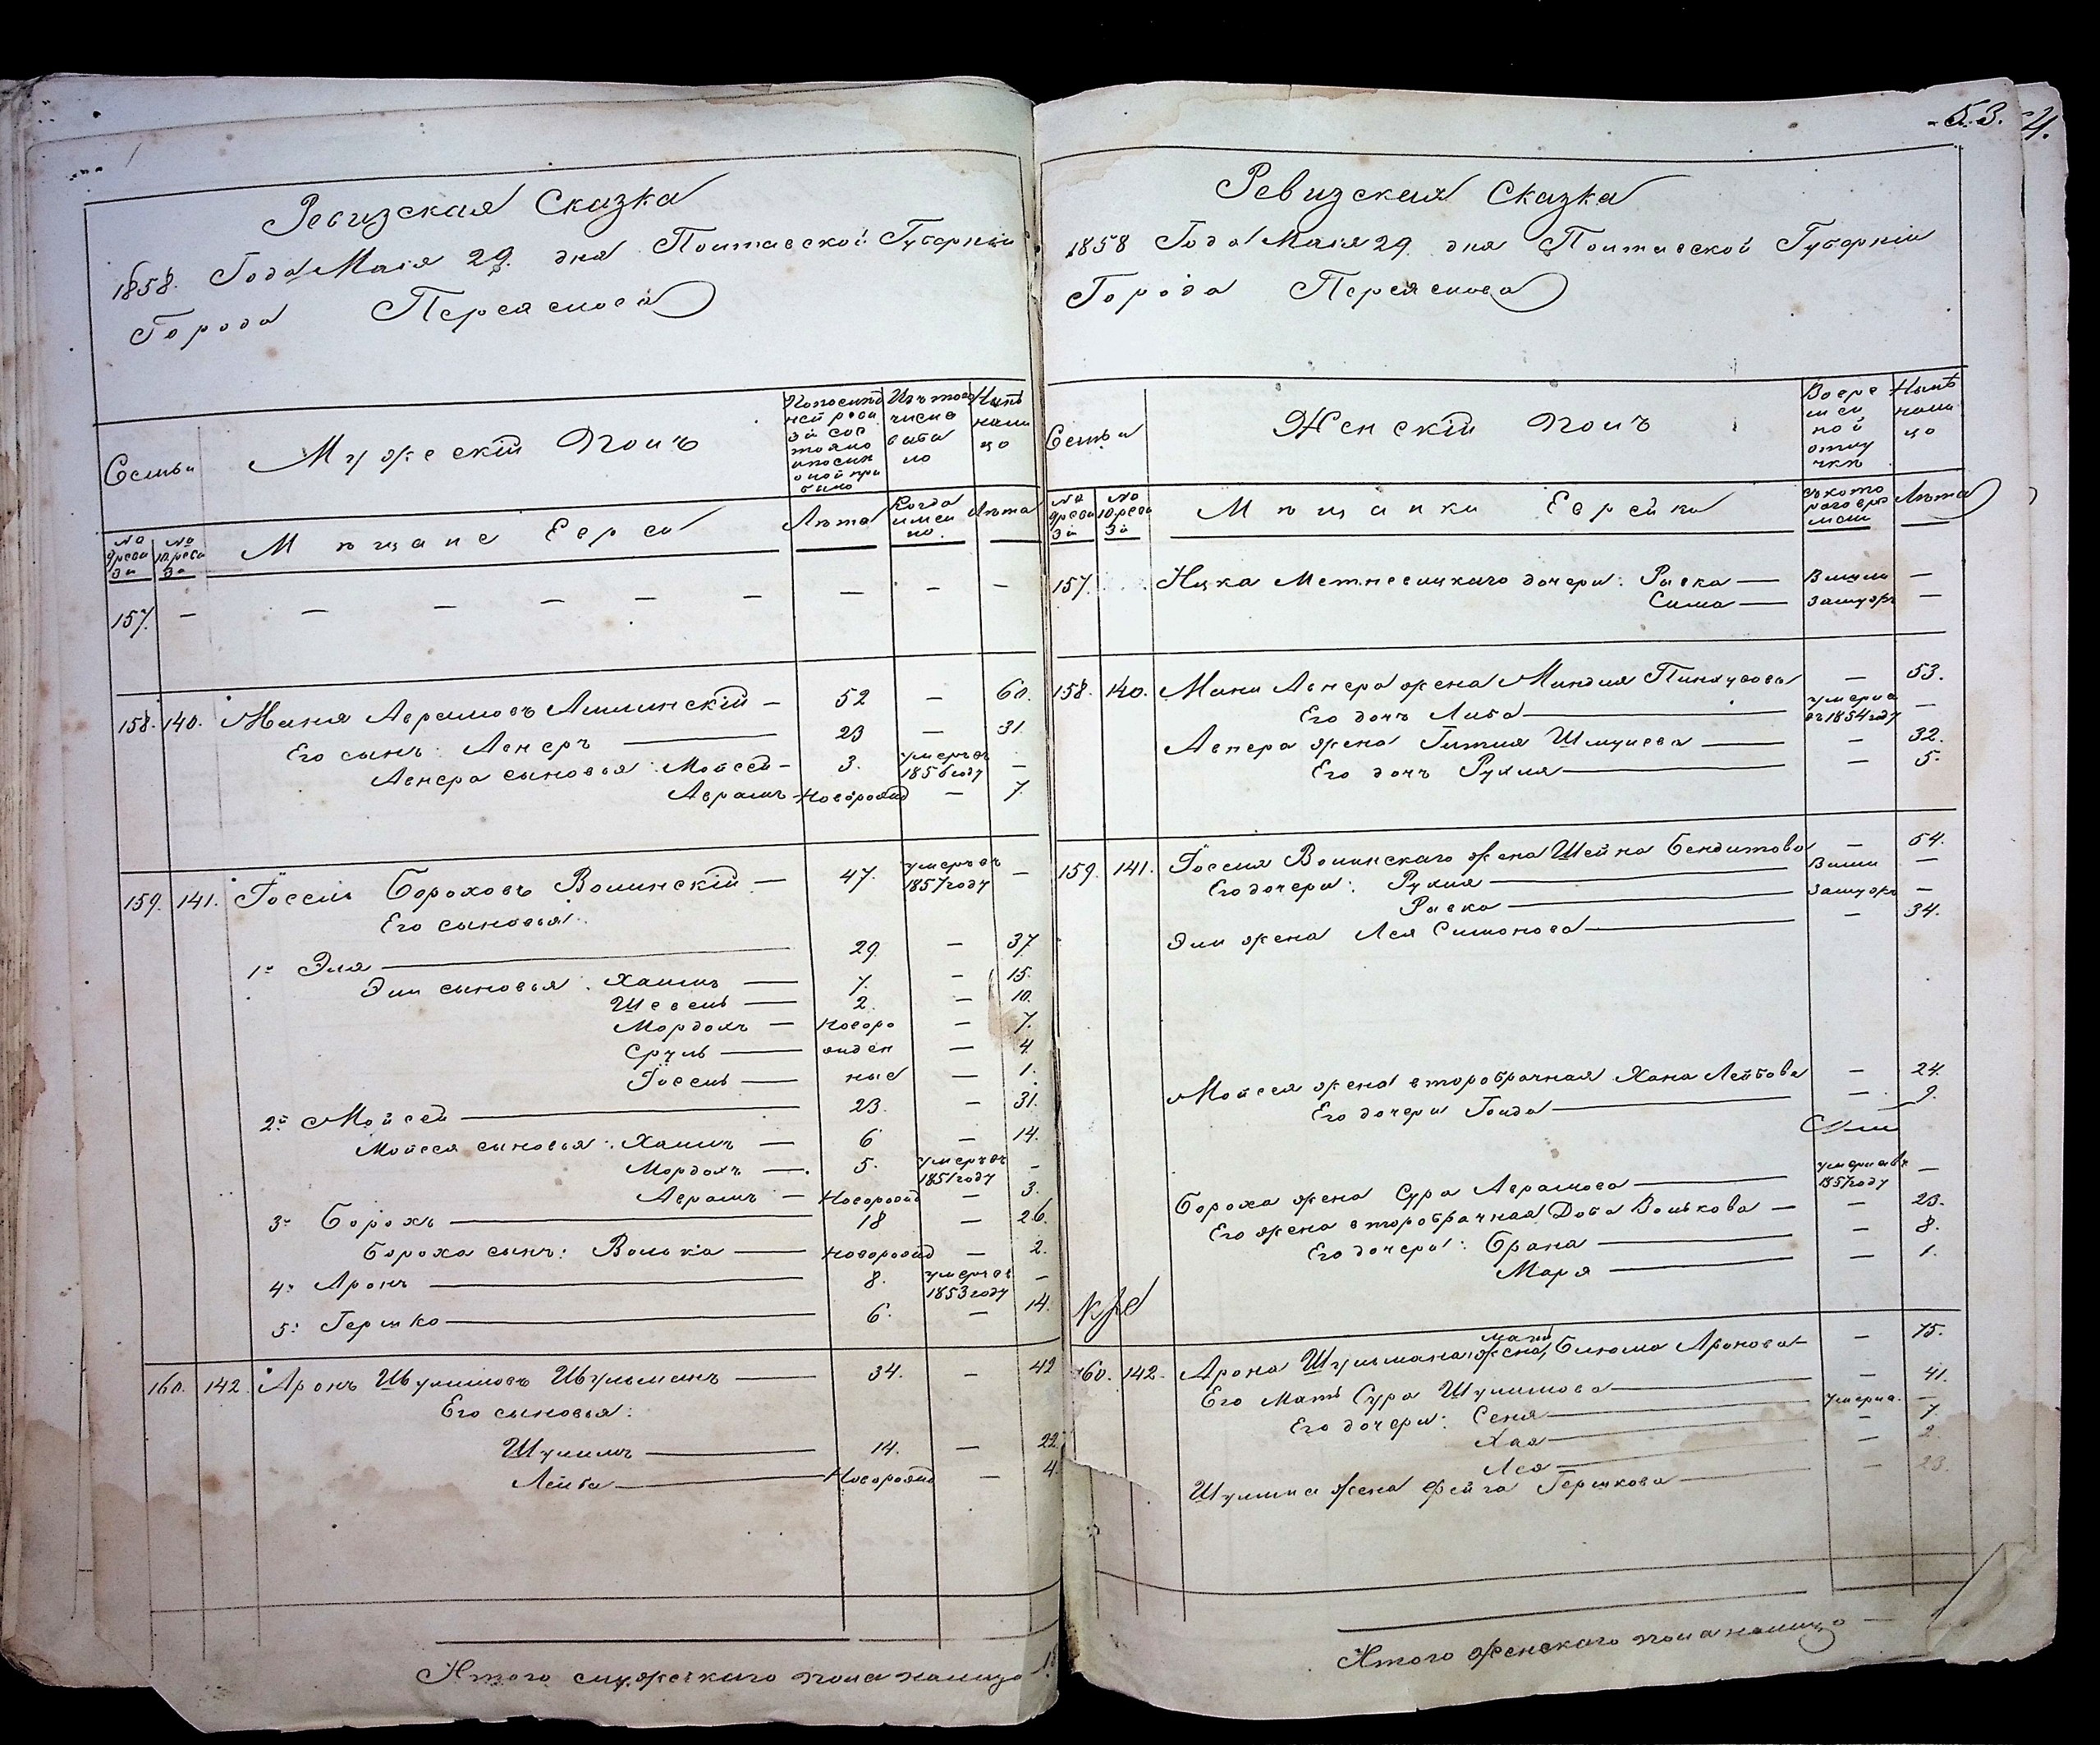 53.
Ревизская Сказка
1858. Года Маія 29. дня Полтавской Губерніи
Города Переяслова
Семьи
Мужескій Полъ
По последней ревизіи состояло и после оной прибыло
Изъ того числа выбыло
Ныне на лицо
№ 9 ревизіи
№ 10 ревизіи
Мѣщане Евреи
Лѣта
Когда именно.
Лѣта
157. — — — — — — — — — —
158. 140. Маня Аврамовъ — 52 — 60.
Его сынъ: Авнеръ — 23 — 31.
Авнера сыновья: Мойсей — 3. умеръ въ 1856 году —
Аврамъ — Новорожд — 7.
159. 141. Іосель Бороховъ Волинскій — 47. умеръ въ 1857 году —
Его сыновья:
1й Эля — 29. — 37.
Эли сыновья: Хаимъ — 7. — 15.
Шевель — 2. — 10.
Мордохъ — Новоро — 7.
Сруль — жден — 4.
Іосель — ные — 1.
2й Мойсей — 23. — 31.
Мойсея сыновья: Хаимъ — 6 — 14.
Мордохъ — 5. умеръ въ 1851 году —
Аврамъ — Новорожд — 3.
3й Борохъ — 18 — 26.
Бороха сынъ: Волька — Новорожд — 2.
4й Аронъ — 8. умеръ въ 1853 году —
5й Гершко — 6. — 14.
160. 142. Аронъ Шулимовъ Шульманъ — 34. — 42
Его сыновья:
Шулимъ — 14. — 22.
Лейба — Новорожд — 4.
Итого мужескаго пола налицо
Ревизская Сказка
1858 Года Маія 29. дня Полтавской Губерніи
Города Переяслова
Семьи
Женскій Полъ
Во временной отлучкѣ
Ныне на лицо
№ 9 ревизіи
№ 10 ревизіи
Мѣщанки Еврейки
съ котораго времени
Лѣта
157. дочери: Раска — Вышли —
Сима — замужъ —
158. 140. Мани жена Миндля — 53.
Его дочь Либа — умерла въ 1854 году —
Авнера жена Гитля Шмулева — — 32.
Его дочь Рухля — — 5.
159. 141. Іоселя Волинскаго жена Шейна Бендитова — 54.
Его дочери: Рухля — Вышли —
Раска — Замужъ —
Эли жена Лея Симонова — — 34.
Мойсея жена второбрачная Хана Лейбова — 24.
Его дочери Голда — — 9.
Бороха жена Сура Аврамова — умерла въ 1857 году —
Его жена второбрачная Доба Волькова — — 23.
Его дочери: Брана — — 8.
Маря — — 1.
160. 142. Арона Шульмана жена, Блюма Аронова — — 75.
мать
Его Мать Сура Шулимова — — 41.
Его дочери: Сеня — умерла. —
Хая — — 7.
Лея — — 2.
Шулима жена Фейга Гершкова — — 23.
Итого женскаго пола налицо —